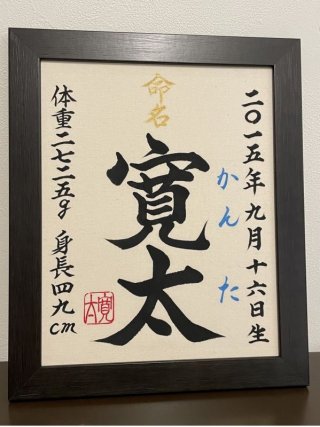 二〇一五年九月十六日生
かんた
命名
寛太
体重二七二五g 身長四九cm
寛太